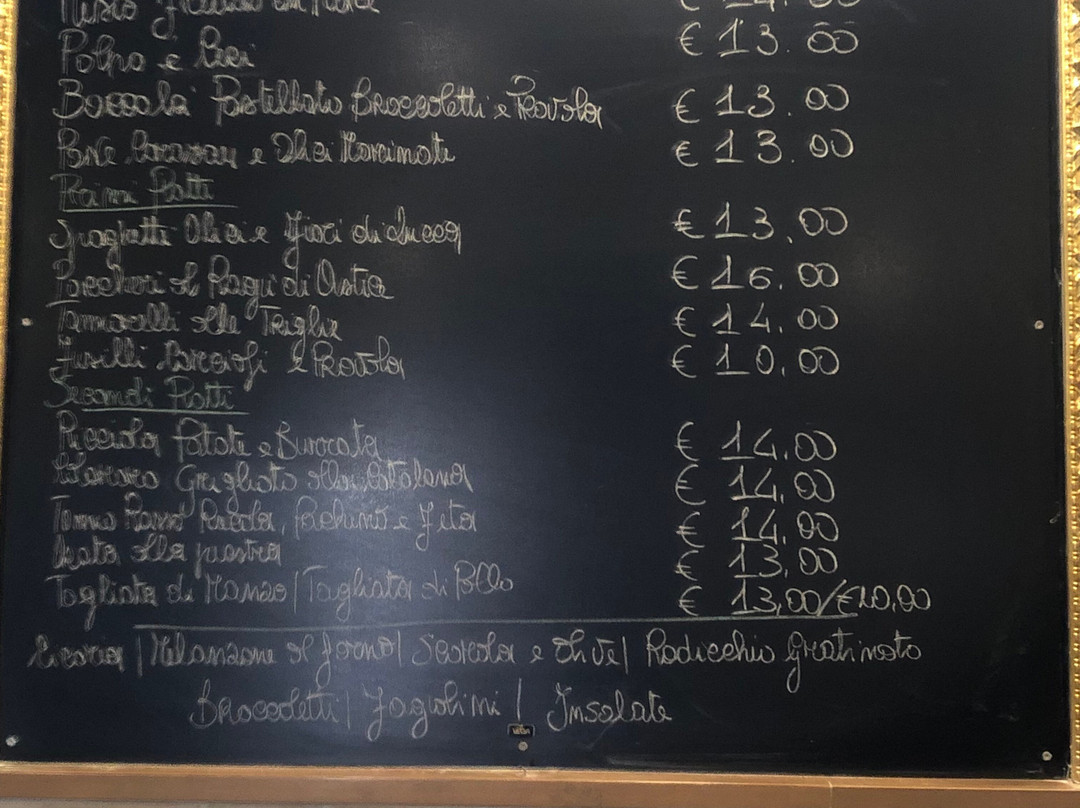 Misto € 14.00
Polpo e Ceci € 13.00
Baccalà Pastellato Broccoletti e Provola € 13.00
e Alici Marinate € 13.00
Primi Piatti
Spaghetti Alici e Fiori di Zucca € 13.00
Paccheri al Ragù di € 16.00
alle Triglie € 14.00
Fusilli Carciofi e Provola € 10.00
Secondi Piatti
Ricciola Patate e Burrata € 14.00
Grigliato alla Catalana € 14.00
Tonno Rucola, Pachino e Feta € 14.00
alla piastra € 13,00
Tagliata di Manzo / Tagliata di Pollo € 13,00/€10,00
Cicoria | Melanzane al forno | Scarola e Olive | Radicchio Gratinato
Broccoletti | Fagiolini | Insalate
VEGA